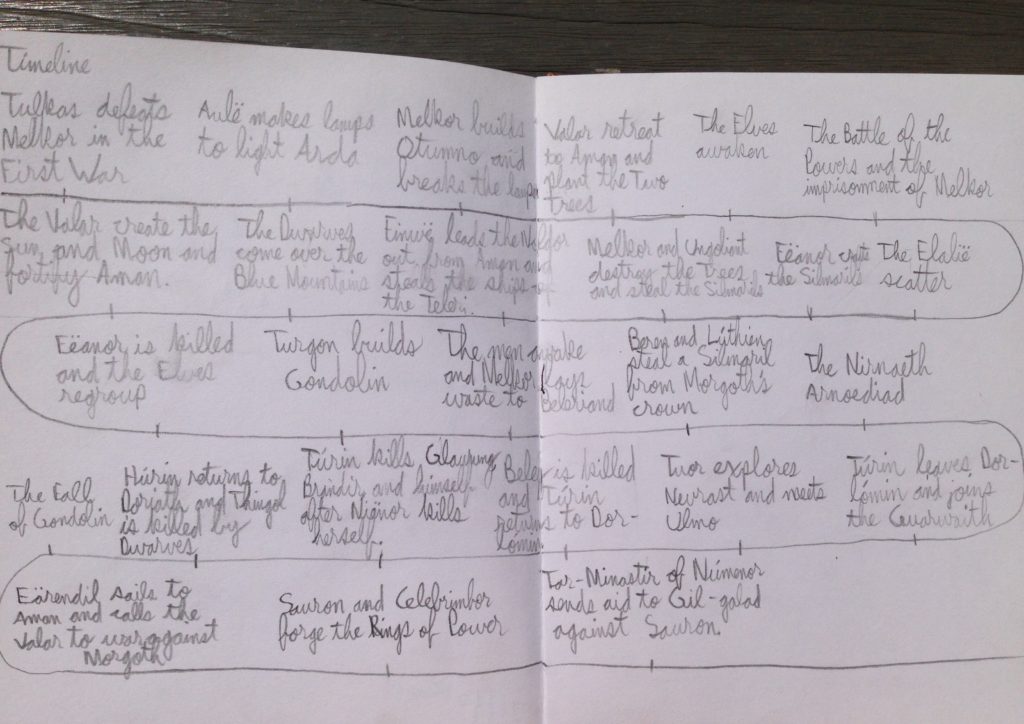 Timeline
Tulkas defeats
Melkor in the
First War
Aulë makes lamps
to light Arda
Melkor builds
Utumno and
breaks the lamps
Valar retreat
to Aman and
plant the Two
Trees
The Elves
awaken
The Battle of the
Powers and the
imprisonment of Melkor
The Valar create the
Sun, and Moon and
fortify Aman.
The Dwarves
come over the
Blue Mountains
Finwë leads the Noldor
out from Aman and
steals the ships of
the Teleri.
Melkor and Ungoliant
destroy the Trees
and steal the Silmarils
Fëanor crate
the Silmarils
The Elalië
scatter
Fëanor is killed
and the Elves
regroup
Turgon builds
Gondolin
The men awake
and Melkor lays
waste to Beleriand
Beren and Lúthien
steal a Silmaril
from Morgoth's
crown
The Nirnaeth
Arnoediad
The Fall
of Gondolin
Húrin returns to
Doriath and Thingol
is killed by
Dwarves
Túrin kills Glaurung,
Brindir and himself
after Niënor kills
herself.
Beleg is killed
and Túrin
returns to Dor-
lómin.
Tuor explores
Nevrast and meets
Ulmo
Túrin leaves Dor-
lómin and joins
the Guarwaith
Eärendil sails to
Aman and calls the
Valar to war against
Morgoth
Sauron and Celebrimbor
forge the Rings of Power
Tar-Minastir of Númenor
sends aid to Gil-galad
against Sauron.